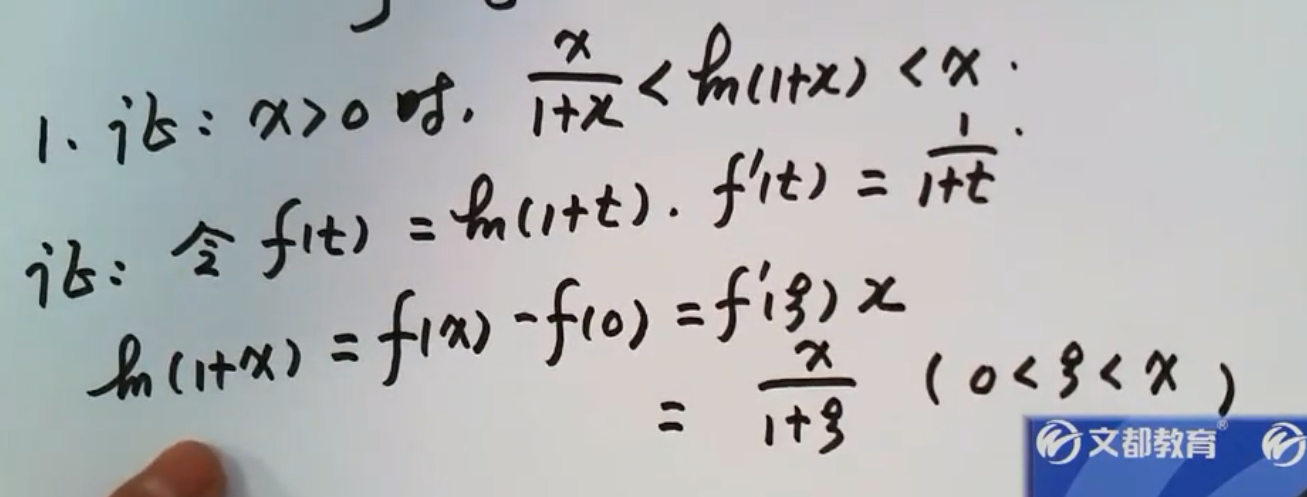 1. 证: x>0 时. x/(1+x) < ln(1+x) < x.
证: 令 f(t) = ln(1+t). f'(t) = 1/(1+t).
ln(1+x) = f(x) - f(0) = f'(ξ) x
= x/(1+ξ) (0<ξ<x)
文都教育®